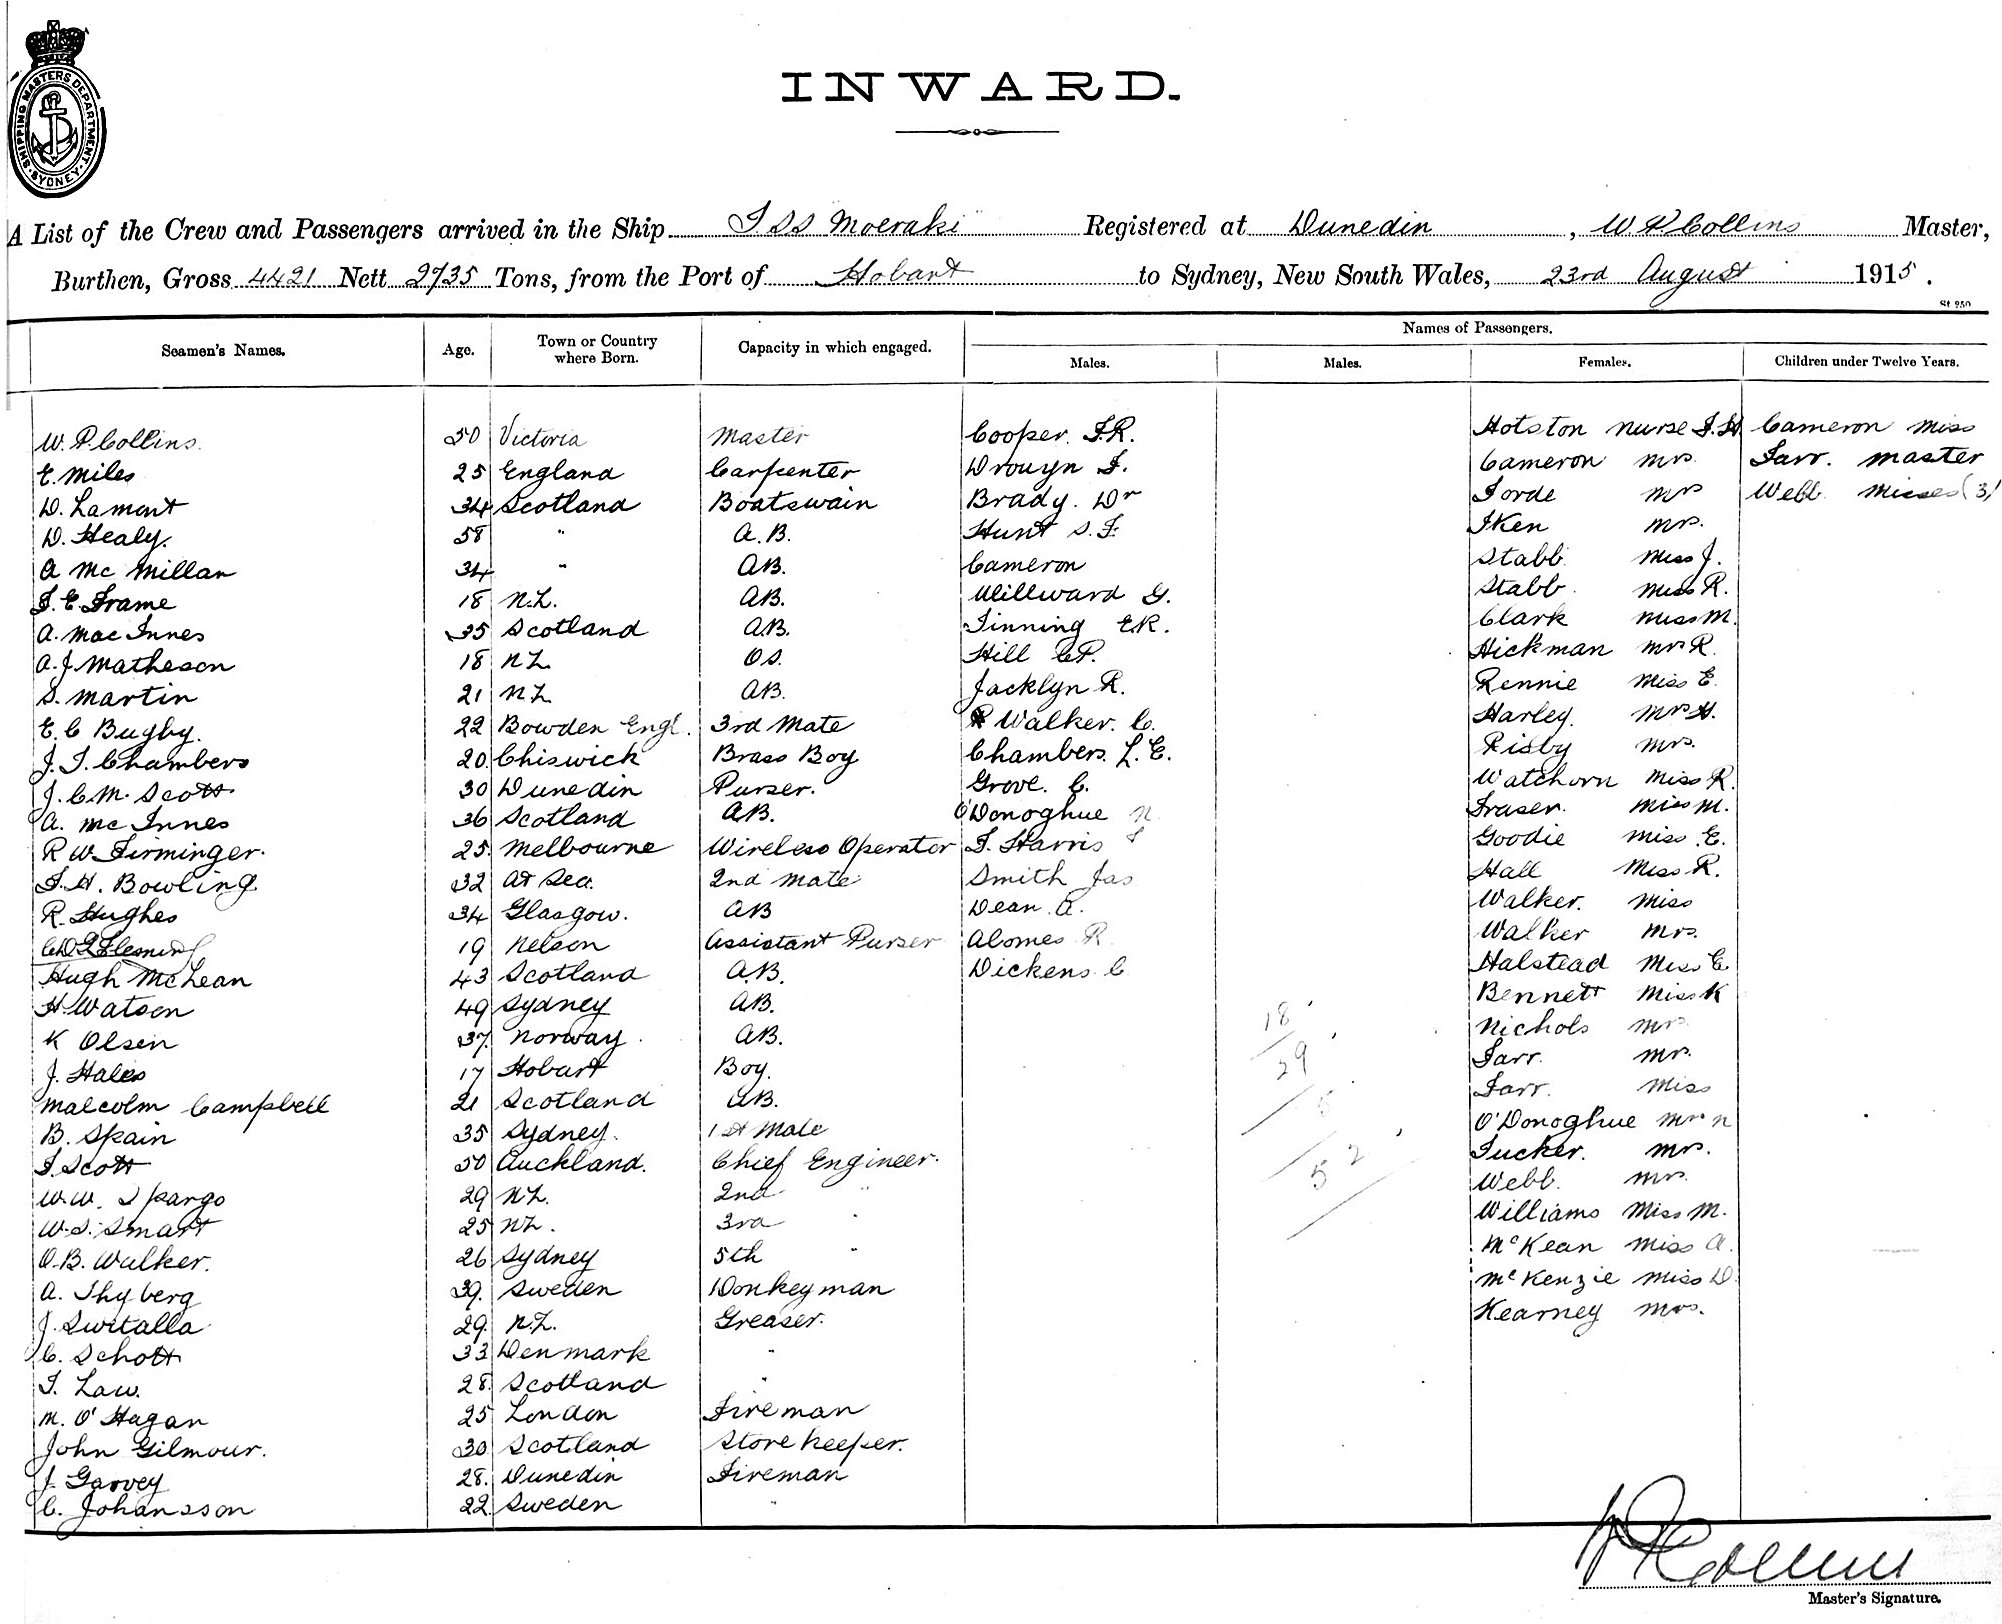 SHIPPING MASTERS DEPARTMENT · SYDNEY ·
INWARD.
A List of the Crew and Passengers arrived in the Ship T S S Moeraki Registered at Dunedin, W P Collins Master,
Burthen, Gross 4421 Nett 2735 Tons, from the Port of Hobart to Sydney, New South Wales, 23rd August 1915.
St 250
Names of Passengers.
Seamen's Names. Age. Town or Country where Born. Capacity in which engaged. Males. Males. Females. Children under Twelve Years.
W. P. Collins 50 Victoria Master Cooper. F.R. Hotston Nurse F.H Cameron Miss
E. Miles 25 England Carpenter Drouyn F. Cameron Mrs Farr. Master
D. Lamont 34 Scotland Boatswain Brady. Dr Forde Mrs Webb Misses (3)
D. Healy. 58 " A.B. Hunt S.F. Iken Mrs.
A Mc Millan 34 " AB. Cameron Stabb Miss J.
F. E. Frame 18 N.Z. AB. Millward G. Stabb Miss R.
A. Mac Innes 35 Scotland A.B. Tinning E.R. Clark Miss M.
A. J. Matheson 18 N Z. O S. Hill C.P. Hickman Mrs R.
S. Martin 21 N.Z. AB. Jacklyn R. Rennie Miss E.
E. C Bugby. 22 Bowden Engl. 3rd Mate Walker. C. Harley. Mrs H.
J. T. Chambers 20. Chiswick Brass Boy Chambers. L. E. Risby Mrs.
J. C. M. Scott 30 Dunedin Purser. Grove. C. Watchorn Miss R.
A. Mc Innes 36 Scotland AB. O'Donoghue N Fraser. Miss M.
R W Firminger. 25. Melbourne Wireless Operator F. Harris Goodie Miss E.
F. H. Bowling 32 At Sea. 2nd Mate Smith Jas Hall Miss R.
R. Hughes 34 Glasgow. AB Dean A. Walker. Miss
Fleming 19 Nelson Assistant Purser Alomes R Walker Mrs.
Hugh McLean 43 Scotland A.B. Dickens C Halstead Miss E
H Watson 49 Sydney AB. Bennett Miss K
K Olsen 37. Norway. AB. 18 Nichols Mrs
J. Hales 17 Hobart Boy. 29 Farr. Mrs.
Malcolm Campbell 21 Scotland AB. 5 Farr. Miss
B. Spain 35 Sydney. 1st Mate O'Donoghue Mrs N
F. Scott 50 Auckland. Chief Engineer. 52 Tucker. Mrs.
W. W. Spargo 29 N Z. 2nd " Webb. Mrs.
W. S. Smart 25 NZ. 3rd " Williams Miss M.
O. B. Walker. 26 Sydney 5th " McKean Miss A.
A. Thyberg 39. Sweden Donkeyman McKenzie Miss D.
J. Switalla 29. N.Z. Greaser. Kearney Mrs.
C. Schott 33 Denmark "
T. Law. 28. Scotland "
M. O' Hagan 25 London Fireman
John Gilmour. 30. Scotland Storekeeper.
J. Garvey 28. Dunedin Fireman
C. Johansson 22. Sweden "
W P Collins
Master's Signature.